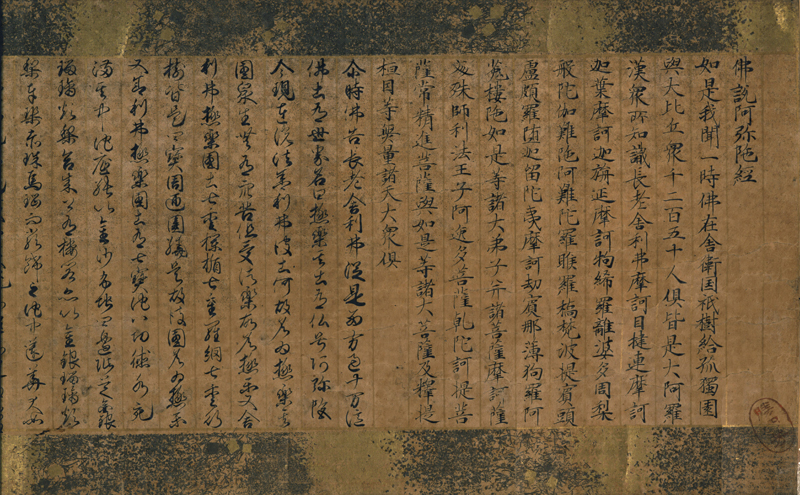 佛說阿弥陁經
如是我聞一時佛在舎衛国祇樹給孤獨園
與大比丘衆千二百五十人俱皆是大阿羅
漢衆所知識長老舎利弗摩訶目揵連摩訶
迦葉摩訶迦旃延摩訶拘絺羅離婆多周梨
般陀伽難陁阿難陀羅睺羅憍梵波提賓頭
盧頗羅堕迦留陀夷摩訶劫賓那薄狗羅阿
㝹樓陁如是等諸大弟子并諸菩薩摩訶薩
文殊師利法王子阿逸多菩薩乹陀訶提菩
薩常精進菩薩與如是等諸大菩薩及釋提
桓因等無量諸天大衆俱
尒時佛告長老舎利弗從是西方過十万億
佛土有世界名曰極樂其土有仏号阿弥陀
今現在説法舎利弗彼土何故名為極樂其
國衆生無有衆苦但受諸樂故名極樂又舎
利弗極樂國土七重欄楯七重羅網七重行
樹皆是四寶周迊圍繞是故彼國名為極樂
又舎利弗極樂國土有七寶池八功徳水充
満其中池底純以金沙布地四邊階道金銀
瑠璃頗梨合成上有樓閣亦以金銀瑠璃頗
梨車𤦲赤珠馬瑙而嚴餝之池中蓮華大如